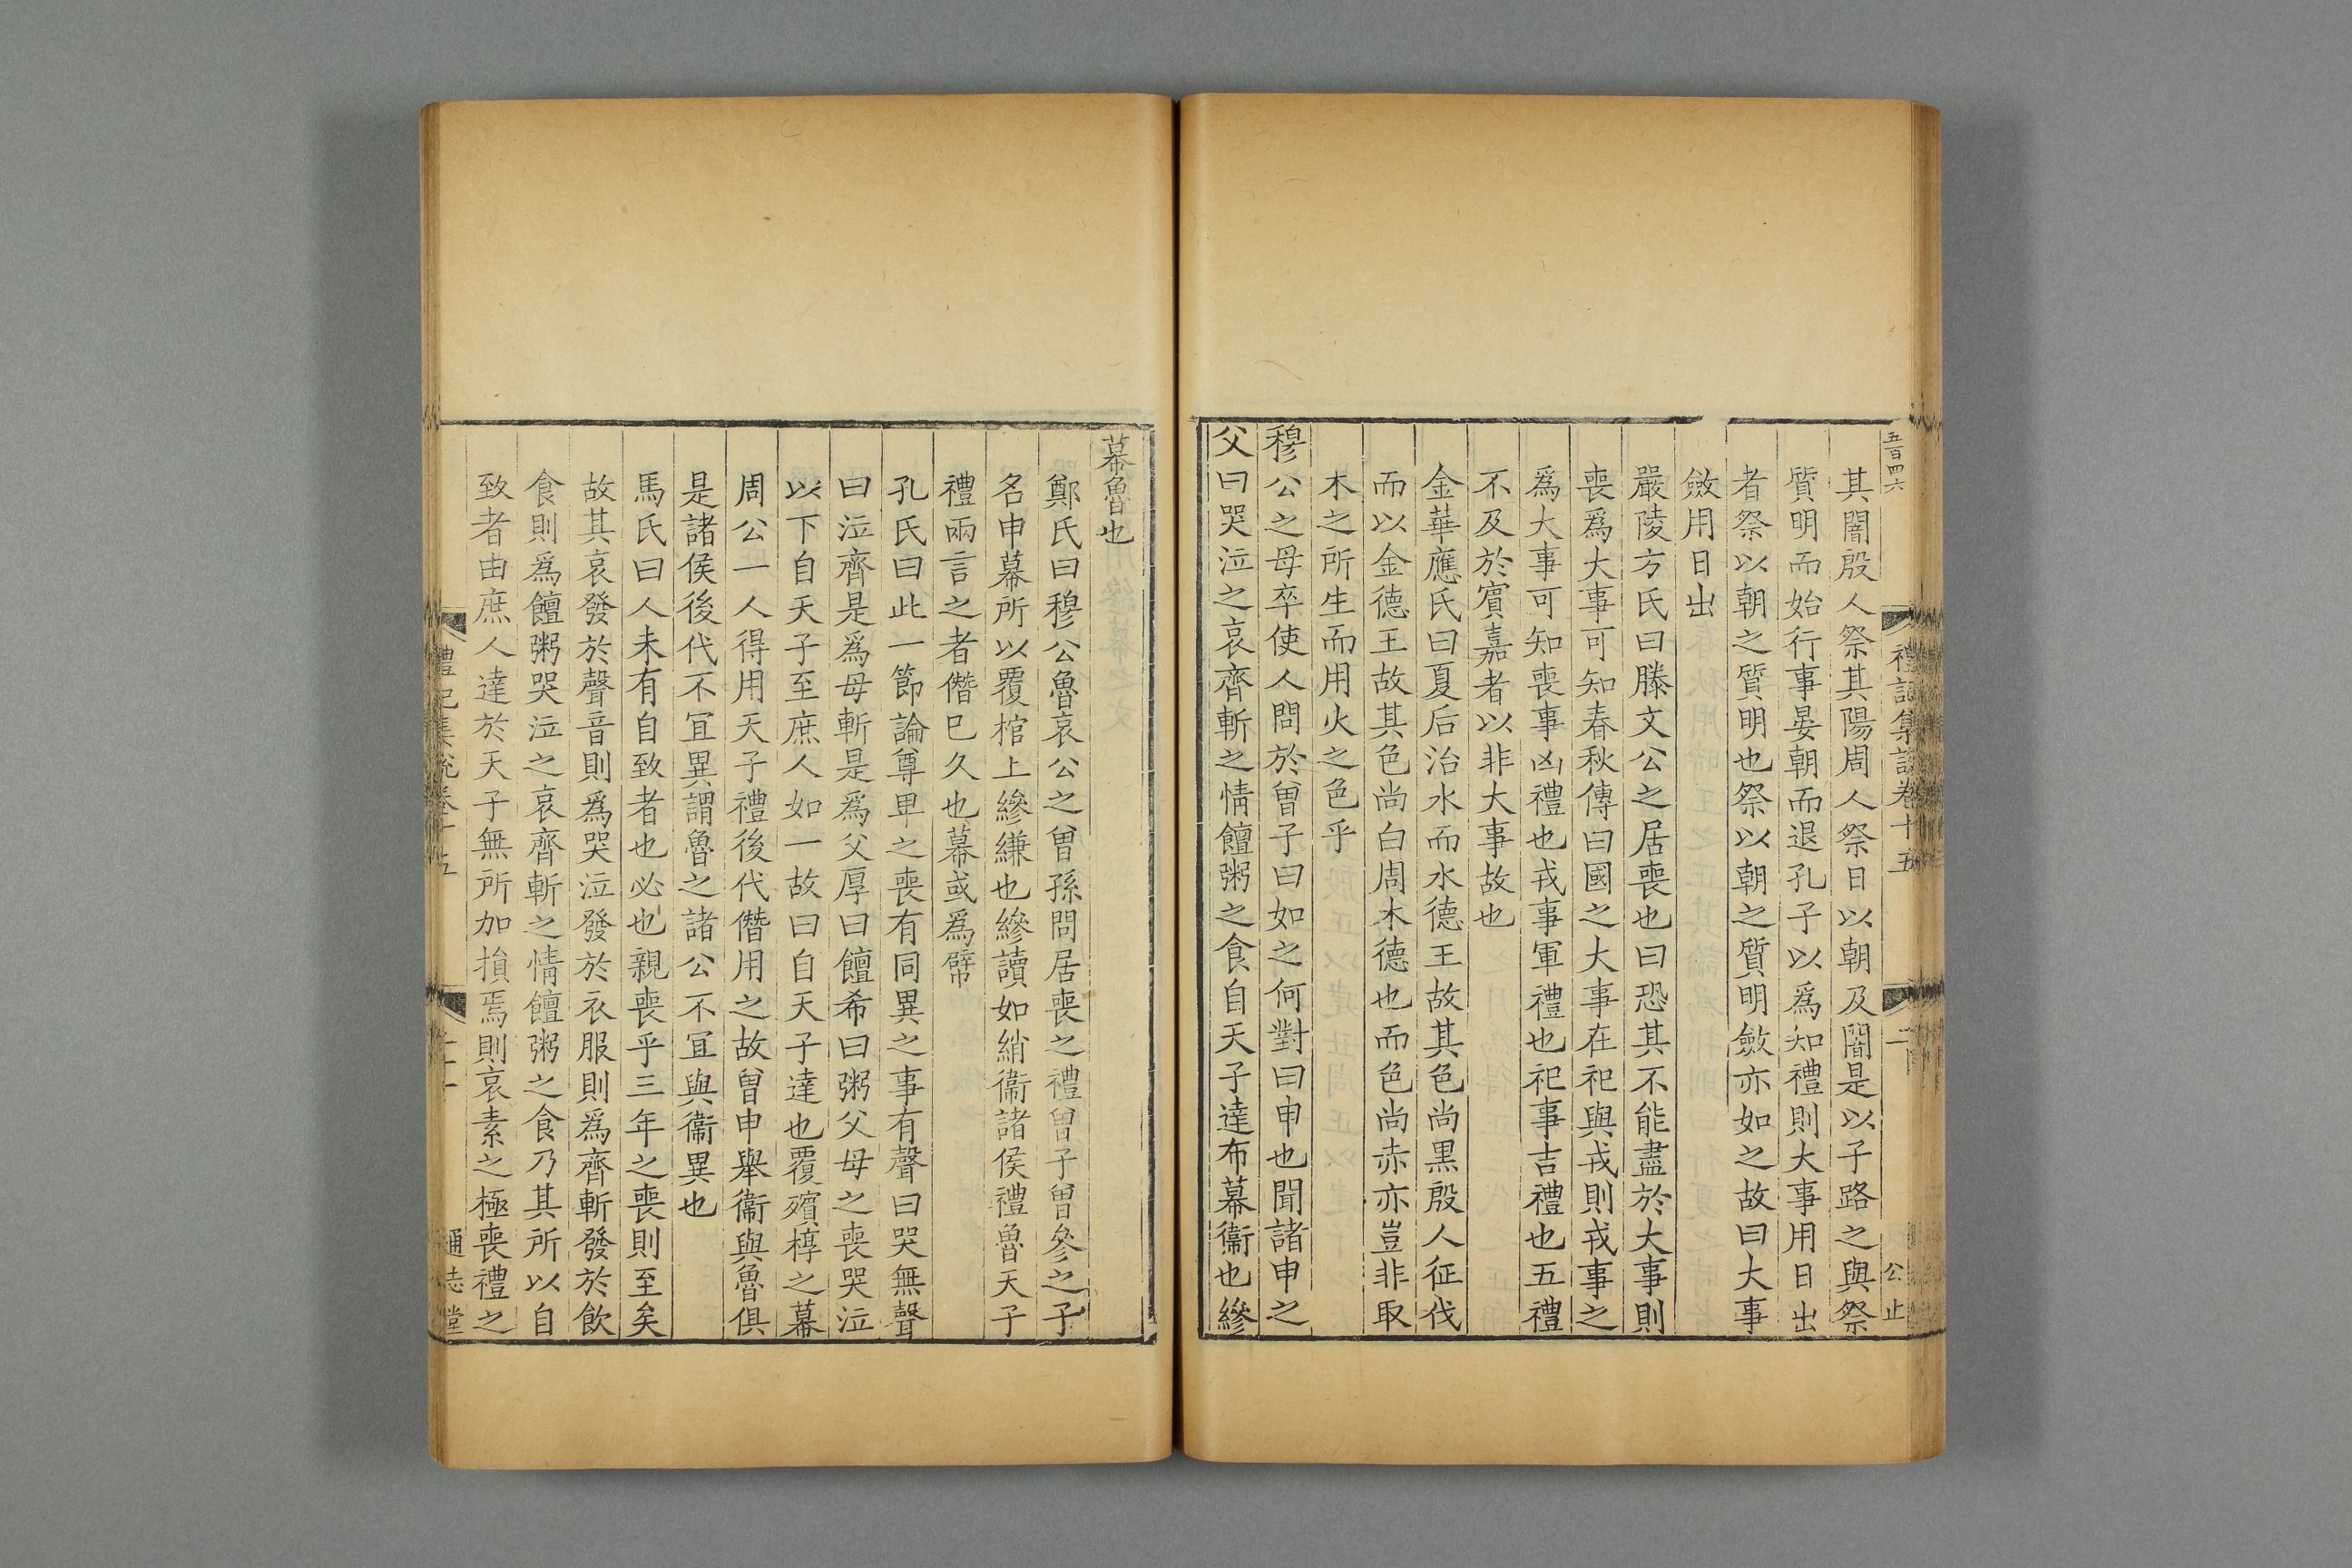 五百四六
禮記集説卷十五
二
公止
其闇殷人祭其陽周人祭日以朝及闇是以子路之與祭
質明而始行事晏朝而退孔子以爲知禮則大事用日出
者祭以朝之質明也祭以朝之質明斂亦如之故曰大事
斂用日出
嚴陵方氏曰滕文公之居喪也曰恐其不能盡於大事則
喪爲大事可知春秋傳曰國之大事在祀與戎則戎事之
爲大事可知喪事凶禮也戎事軍禮也祀事吉禮也五禮
不及於賔嘉者以非大事故也
金華應氏曰夏后治水而水德王故其色尚黒殷人征伐
而以金德王故其色尚白周木德也而色尚赤亦豈非取
木之所生而用火之色乎
穆公之母卒使人問於曾子曰如之何對曰申也聞諸申之
父曰哭泣之哀齊斬之情饘粥之食自天子達布幕衞也縿
幕魯也
鄭氏曰穆公魯哀公之曾孫問居喪之禮曾子曾參之子
名申幕所以覆棺上縿縑也縿讀如綃衞諸侯禮魯天子
禮兩言之者僭巳久也幕或爲幦
孔氏曰此一節論尊卑之喪有同異之事有聲曰哭無聲
曰泣齊是爲母斬是爲父厚曰饘希曰粥父母之喪哭泣
以下自天子至庶人如一故曰自天子達也覆殯椁之幕
周公一人得用天子禮後代僭用之故曾申舉衞與魯俱
是諸侯後代不冝異謂魯之諸公不冝與衞異也
馬氏曰人未有自致者也必也親喪乎三年之喪則至矣
故其哀發於聲音則爲哭泣發於衣服則爲齊斬發於飲
食則爲饘粥哭泣之哀齊斬之情饘粥之食乃其所以自
致者由庶人達於天子無所加損焉則哀素之極喪禮之
禮記集説卷十五
通志堂